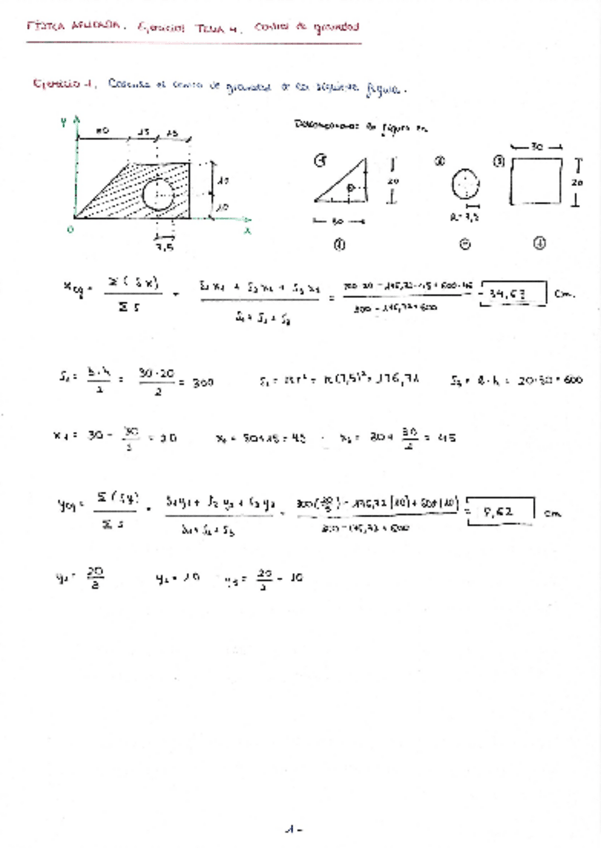 FÍSICA APLICADA. Ejercicios TEMA 4. Centros de gravedad
Ejercicio 1. Calcular el centro de gravedad de la siguiente figura.
Descomponemos la figura en
Y
30 15 15
10
10
0
X
7,5
1
20
30
+
2
R=7,5
-
3
30
20
+
Xcg = Σ(Sx) / Σs = (S1 x1 + S2 x2 + S3 x3) / (S1 + S2 + S3) = (300·20 - 176,72·45 + 600·45) / (300 - 176,72 + 600) = 34,63 cm.
S1 = b·h / 2 = 30·20 / 2 = 300 S2 = πr² = π(7,5)² = 176,72 S3 = b·h = 20·30 = 600
x1 = 30 - 30/3 = 20 x2 = 30+15 = 45 x3 = 30 + 30/2 = 45
Ycg = Σ(Sy) / Σs = (S1y1 + S2 y2 + S3 y3) / (S1 + S2 + S3) = (300(20/3) - 176,72(10) + 600(10)) / (300 - 176,72 + 600) = 8,62 cm
y1 = 20/3 y2 = 10 y3 = 20/2 = 10
1-